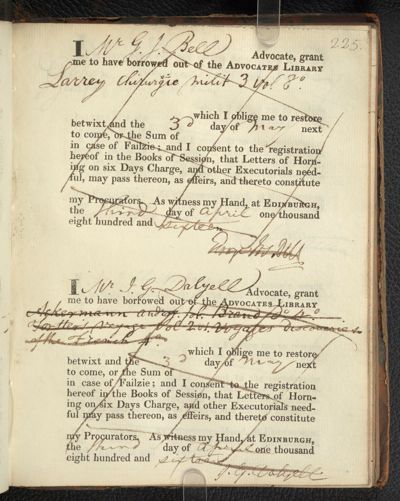 225.
I Mr G. J. Bell Advocate, grant
me to have borrowed out of the ADVOCATES LIBRARY
Larrey chirurgie milit 3 vol 8o.
which I oblige me to restore
betwixt and the 3d day of May next
to come, or the Sum of
in case of Failzie: and I consent to the registration
hereof in the Books of Session, that Letters of Horn-
ing on six Days Charge, and other Executorials need-
ful, may pass thereon, as effeirs, and thereto constitute
my Procurators. As witness my Hand, at EDINBURGH,
the third day of April one thousand
eight hundred and sixteen
I Mr J. G. Dalyell Advocate, grant
me to have borrowed out of the ADVOCATES LIBRARY
Ackermann
discoveries
of the French
which I oblige me to restore
betwixt and the 3d day of May next
to come, or the Sum of
in case of Failzie: and I consent to the registration
hereof in the Books of Session, that Letters of Horn-
ing on six Days Charge, and other Executorials need-
ful may pass thereon, as effeirs, and thereto constitute
my Procurators. As witness my Hand, at EDINBURGH,
the third day of April one thousand
eight hundred and sixteen
J. G. Dalyell